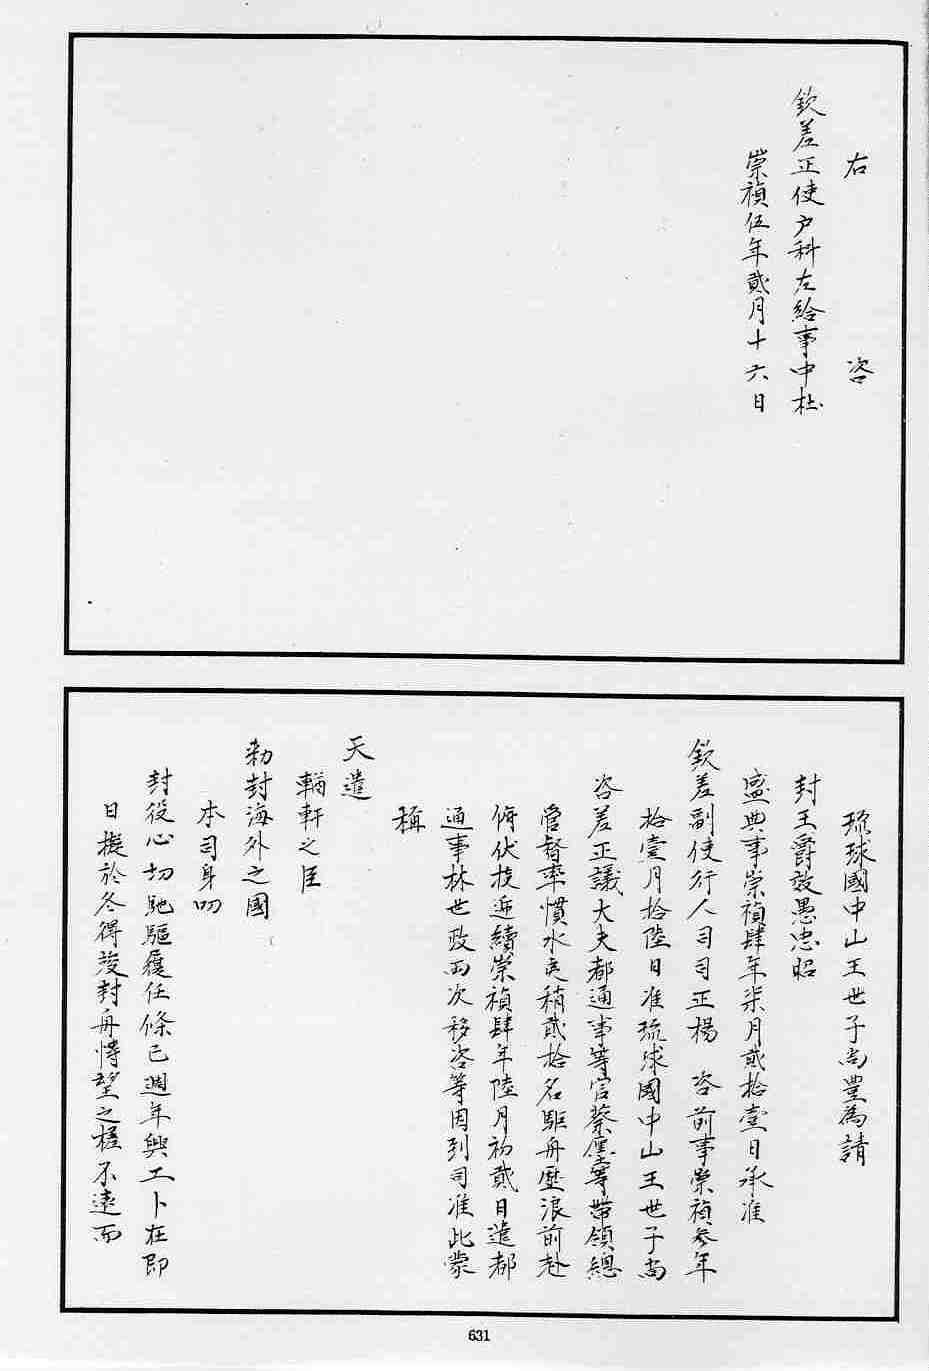 右咨
欽差正使户科左給事中杜
崇禎伍年貳月十六日
琉球國中山王世子尚豐為請
封王爵效愚忠昭
盛典事崇禎肆年柒月貳拾壹日承准
欽差副使行人司司正楊 咨前事崇禎參年
拾壹月拾陸日准琉球國中山王世子尚
咨差正議大夫都通事等官蔡廛等帶領總
管督率慣水吏稍貳拾名駆舟壓浪前赴
俯伏投迎續崇禎肆年陸月初貳日遣都
通事林世政兩次移咨等因到司准此蒙
稱
天遣
輶軒之臣
勅封海外之國
本司身叨
封役心切馳驅履任條已週年興工卜在即
日擬於冬得竣封舟恃望之桅不遠而
631